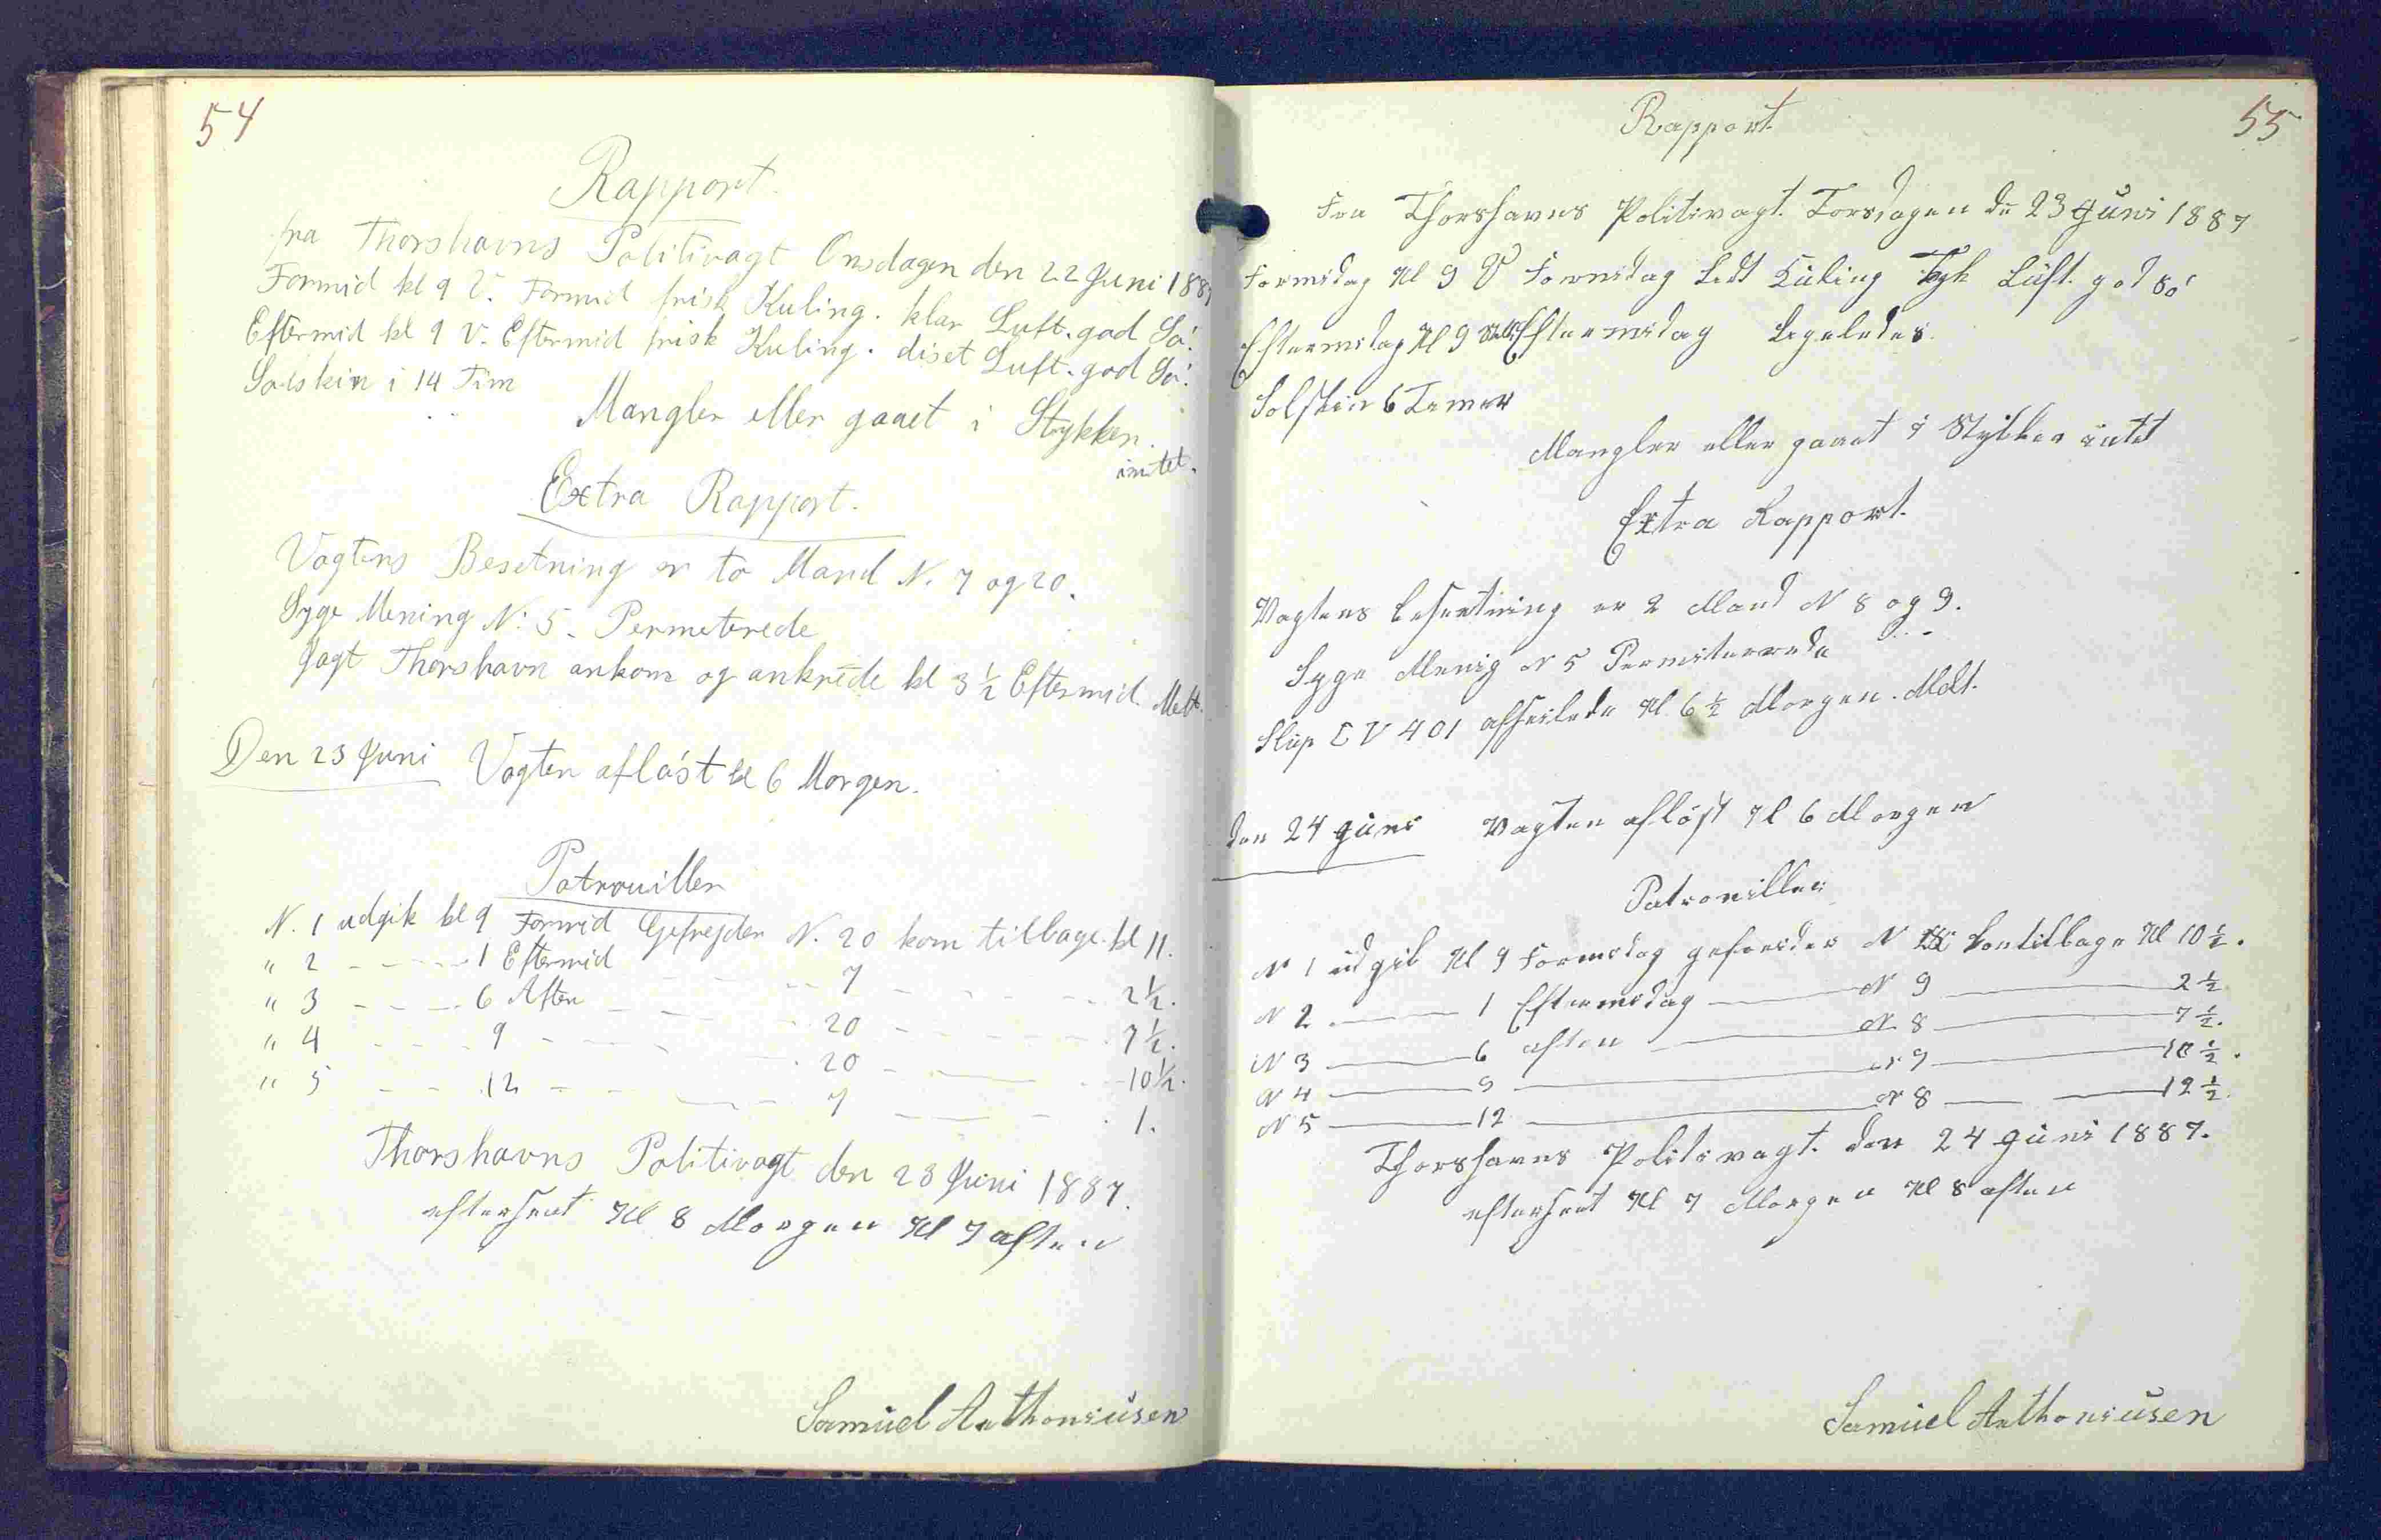 54
Rapport.
fra Thorshavns Politivagt Onsdagen den 22 Juni 1887
Formid kl 9 V. Formid frisk Kuling. klar Luft. god Sö.
Eftermid kl 9 V. Eftermid frisk Kuling. diset Luft. god Sö.
Solskin i 14 Tim
Mangler eller gaaet i Stykker.
intet.
Extra Rapport.
Vagtens Besetning er to Mand N. 7 og 20.
Syge Mening N: 5. Permeterede
Jagt Thorshavn ankom og ankrede kl 3 1/2 Eftermid. Meldt.
Den 23 Juni Vagten aflöst kl 6 Morgen.
Patrouiller
N. 1 udgik kl 9 Formid Gefrejder N. 20 kom tilbage kl 11.
" 2 - - - 1 Eftermid - - - 7 - - - 2 1/2.
" 3 - - - 6 Aften - - - 20 - - - 7 1/2.
" 4 - - - 9 - - - 20 - - - 10 1/2.
" 5 - - 12 - - - 7 - - - 1.
Thorshavns Politivagt den 23 Juni 1887.
efterseet Kl 8 Morgen Kl 7 aften
Samuel Anthoniusen
55
Rapport.
Fra Thorshavns Politivagt. Torsdagen de 23 Juni 1887
Formidag Kl 9 V Formidag Let Kuling Tyk Luft. god Sö
Eftermidag Kl 9 Eftermidag Ligeledes.
Solskin 6 Timer
Mangler eller gaaet i Stykker intet
Extra Rapport.
Vagtens besætning er 2 Mand N 8 og 9.
Syge Menig N 5 Permiterrede - - -
Slup T V 401 afseilede Kl. 6 1/2 Morgen. Mdt.
den 24 Juni Vagten aflöst Kl 6 Morgen
Patrouiller
N 1 udgik Kl 9 Formidag gefreider N komtilbage Kl 10 1/2.
N 2 — 1 Eftermidag — N 9 — 2 1/2
N 3 — 6 aften — N. 8 — 7 1/2.
N 4 — 9 — N 9 — 10 1/2.
N 5 — 12 — N 8 — 12 1/2.
Thorshavns Politivagt. den 24 Juni 1887.
efterseet Kl 7 Morgen Kl 8 aften
Samuel Anthoniusen